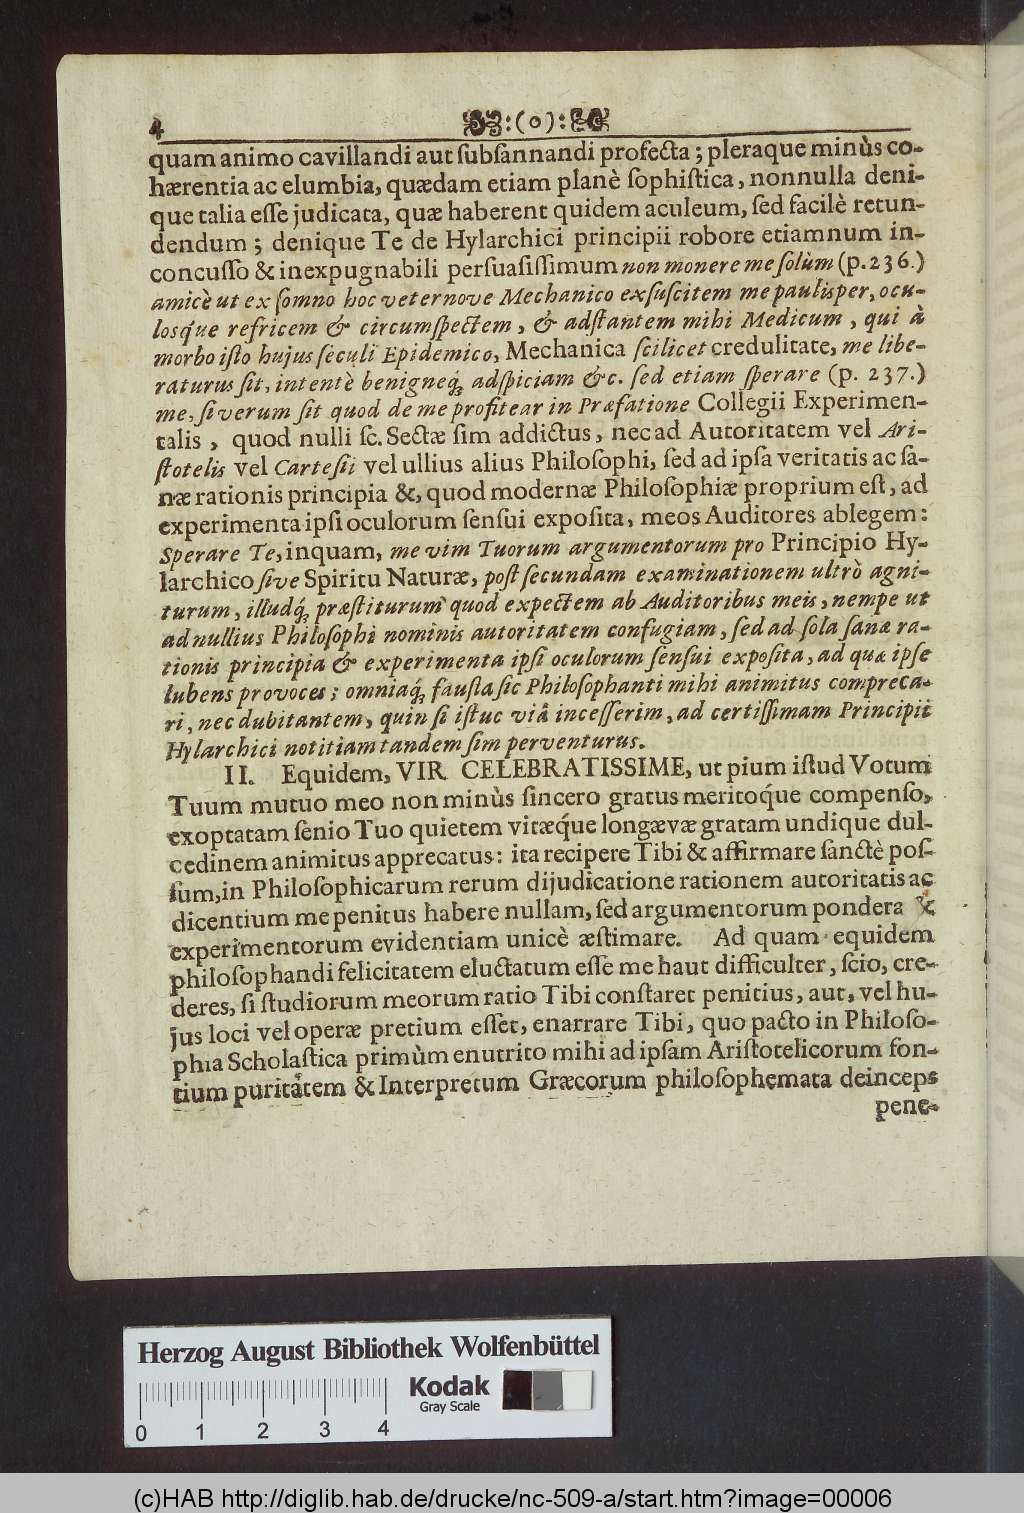 4 :(o):
quam animo cavillandi aut ſubſannandi profecta; pleraque minùs co-
hærentia ac elumbia, quædam etiam planè ſophiſtica, nonnulla deni-
que talia eſſe judicata, quæ haberent quidem aculeum, ſed facilè retun-
dendum; denique Te de Hylarchici principii robore etiamnum in-
concuſſo & inexpugnabili perſuaſiſſimum non monere me ſolùm (p. 236.)
amicè ut ex ſomno hoc veternove Mechanico exſuſcitem me pauliſper, ocu-
losq́ue refricem & circumſpectem, & adſtantem mihi Medicum, qui à
morbo iſto hujus ſeculi Epidemico, Mechanica ſcilicet credulitate, me libe-
raturus ſit, intentè benigneq́; adſpiciam &c. ſed etiam ſperare (p. 237.)
me, ſi verum ſit quod de me profitear in Præfatione Collegii Experimen-
talis, quod nulli ſc. Sectæ ſim addictus, nec ad Autoritatem vel Ari-
ſtotelis vel Carteſii vel ullius alius Philoſophi, ſed ad ipſa veritatis ac ſa-
næ rationis principia &, quod modernæ Philoſophiæ proprium eſt, ad
experimenta ipſi oculorum ſenſui expoſita, meos Auditores ablegem:
Sperare Te, inquam, me vim Tuorum argumentorum pro Principio Hy-
larchico ſive Spiritu Naturæ, poſt ſecundam examinationem ultrò agni-
turum, illudq́; præſtiturum quod expectem ab Auditoribus meis, nempe ut
ad nullius Philoſophi nominis autoritatem confugiam, ſed ad ſola ſanæ ra-
tionis principia & experimenta ipſi oculorum ſenſui expoſita, ad quæ ipſe
lubens provoces; omniaq́; fauſta ſic Philoſophanti mihi animitus compreca-
ri, nec dubitantem, quin ſi iſtuc viâ inceſſerim, ad certiſſimam Principii
Hylarchici notitiam tandem ſim perventurus.
II. Equidem, VIR CELEBRATISSIME, ut pium iſtud Votum
Tuum mutuo meo non minùs ſincero gratus meritoq́ue compenſo,
exoptatam ſenio Tuo quietem vitæq́ue longævæ gratam undique dul-
cedinem animitus apprecatus: ita recipere Tibi & affirmare ſanctè poſ-
ſum, in Philoſophicarum rerum dijudicatione rationem autoritatis ac
dicentium me penitus habere nullam, ſed argumentorum pondera &
experimentorum evidentiam unicè æſtimare. Ad quam equidem
philoſophandi felicitatem eluctatum eſſe me haut difficulter, ſcio, cre-
deres, ſi ſtudiorum meorum ratio Tibi conſtaret penitius, aut, vel hu-
jus loci vel operæ pretium eſſet, enarrare Tibi, quo pacto in Philoſo-
phia Scholaſtica primùm enutrito mihi ad ipſam Ariſtotelicorum fon-
tium puritatem & Interpretum Græcorum philoſophemata deinceps
pene-
Herzog August Bibliothek Wolfenbüttel
Kodak
Gray Scale
0 1 2 3 4
(c)HAB http://diglib.hab.de/drucke/nc-509-a/start.htm?image=00006